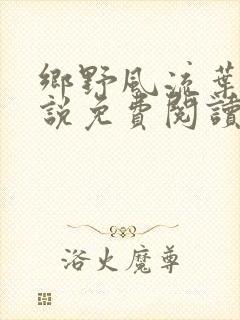 鄉野風流葉
說免費閱讀
浴火魔尊